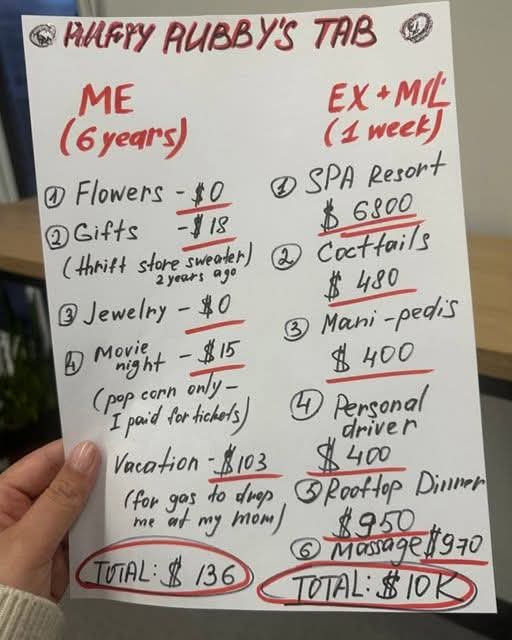 RUBBY'S TAB
ME
(6 years)
① Flowers - $0
② Gifts - $18
(thrift store sweater)
2 years ago
③ Jewelry - $0
④ Movie night - $15
(pop corn only -
I paid for tickets)
Vacation - $103
(for gas to drop
me at my mom)
TOTAL: $ 136
EX + MIL
(1 week)
① SPA Resort
$ 6800
② Cocttails
$ 480
③ Mani-pedis
$ 400
④ Personal
driver
$ 400
⑤ Rooftop Dinner
$950
⑥ Massage $970
TOTAL: $10K